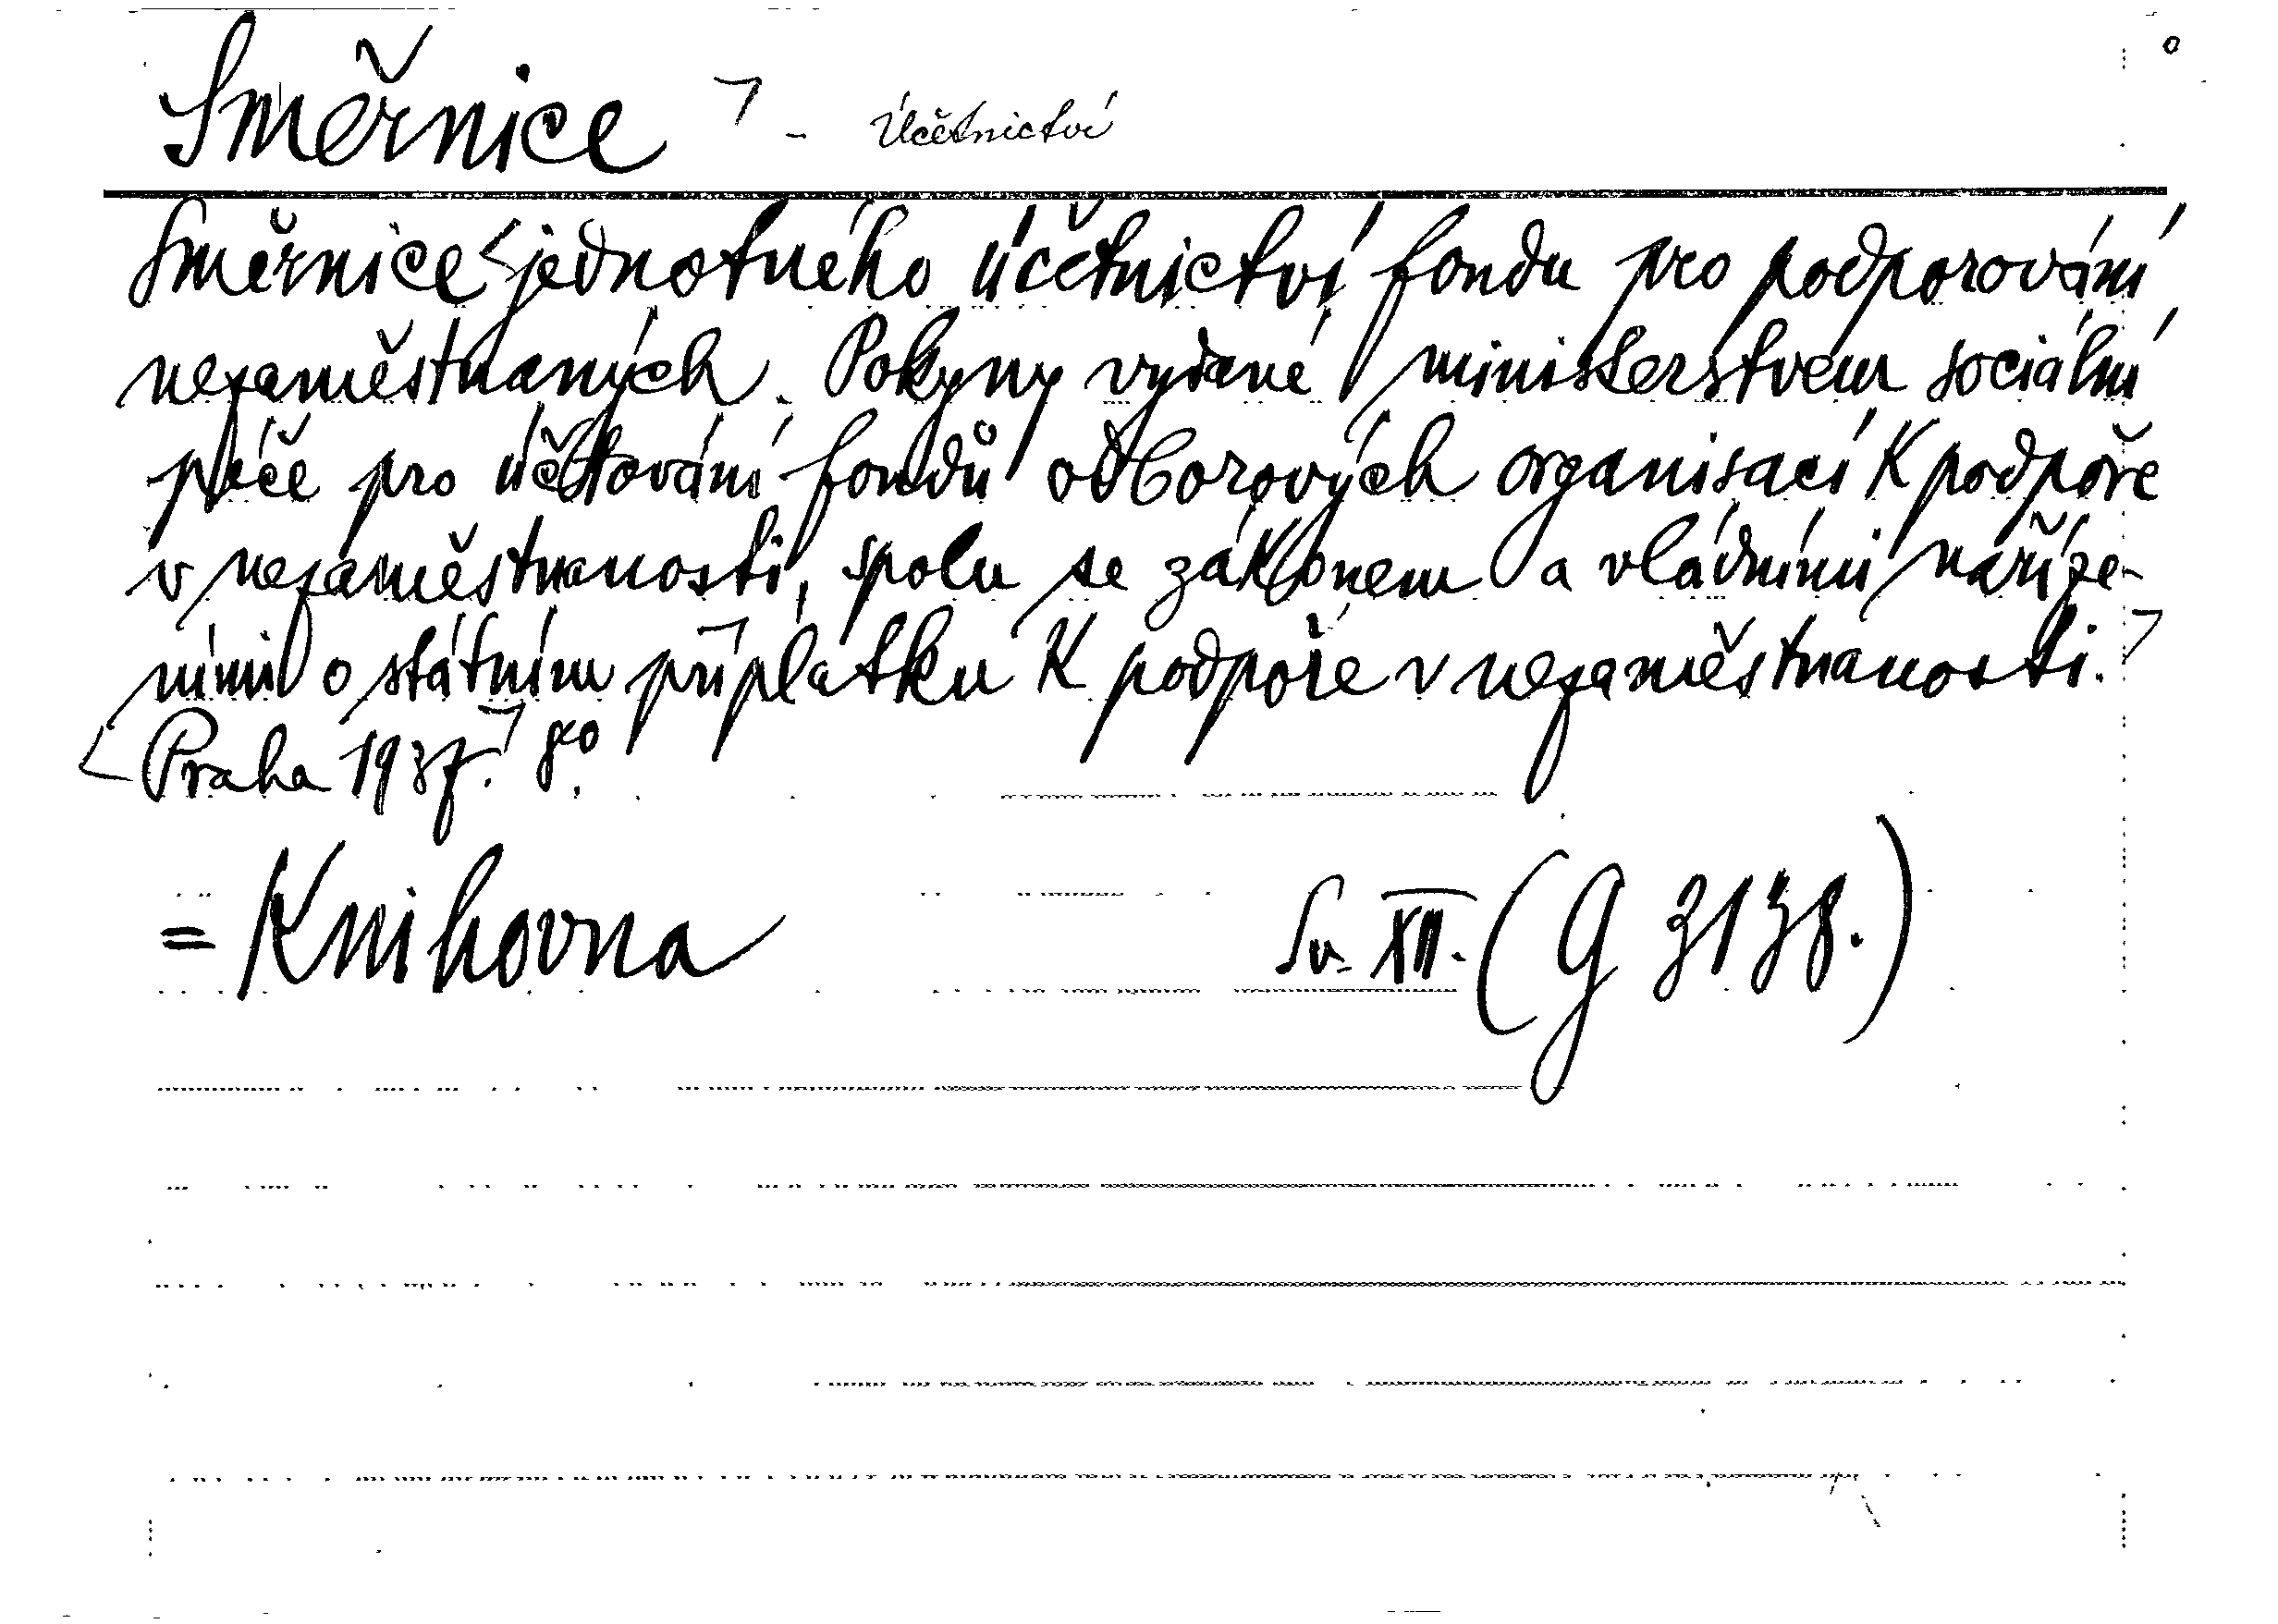 Směrnice - Účetnictví
Směrnice jednotného účetnictví fondu pro podporování
nezaměstnaných. Pokyny vydané ministerstvem sociální
péče pro účtování fondů odborových organisací k podpoře
v nezaměstnanosti, spolu se zákonem a vládními naříze-
ními o státním příplatku k podpoře v nezaměstnanosti.
Praha 1937. 8°.
= Knihovna Sv. XII. (G 3138.)